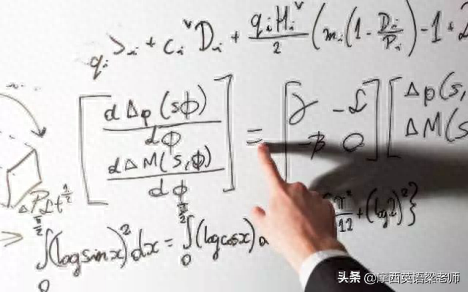 q_i >_i + c_i^v D_i + \frac{q_i H_i^v}{2} (m_i(1 - \frac{D_i}{P_i}) - 1 + 2
[\frac{dΔp(sϕ)}{dϕ} \frac{dΔM(s,ϕ)}{dϕ}] = [γ -L -β 0] [Δp(s ΔM(s
\int_0^{\frac{π}{2}} (log sin x)^2 dx = \int_0^{\frac{π}{2}} (log cos x) \frac{π^2}{12} + (log 2)^2}
头条 @摩西英语梁老师